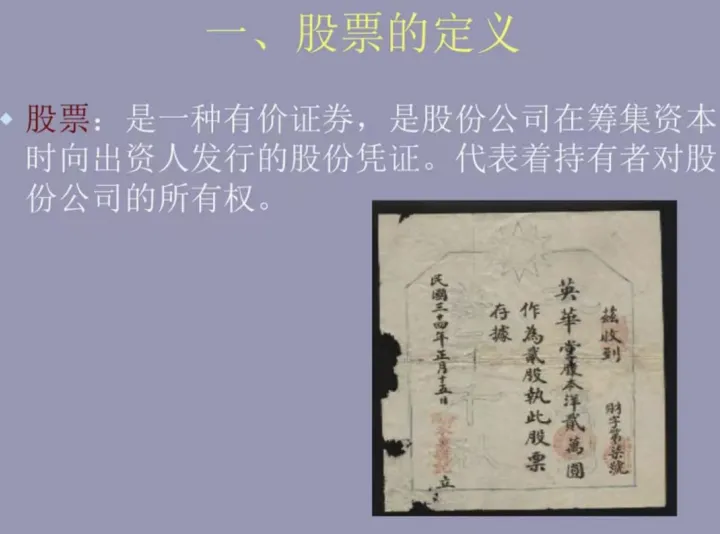 一、股票的定义
股票：是一种有价证券，是股份公司在筹集资本
时向出资人发行的股份凭证。代表着持有者对股
份公司的所有权。
茲收到 財字第柒號
英華堂股本洋貳萬圓
作為貳股執此股票
存據
民國三十四年正月十五日
立